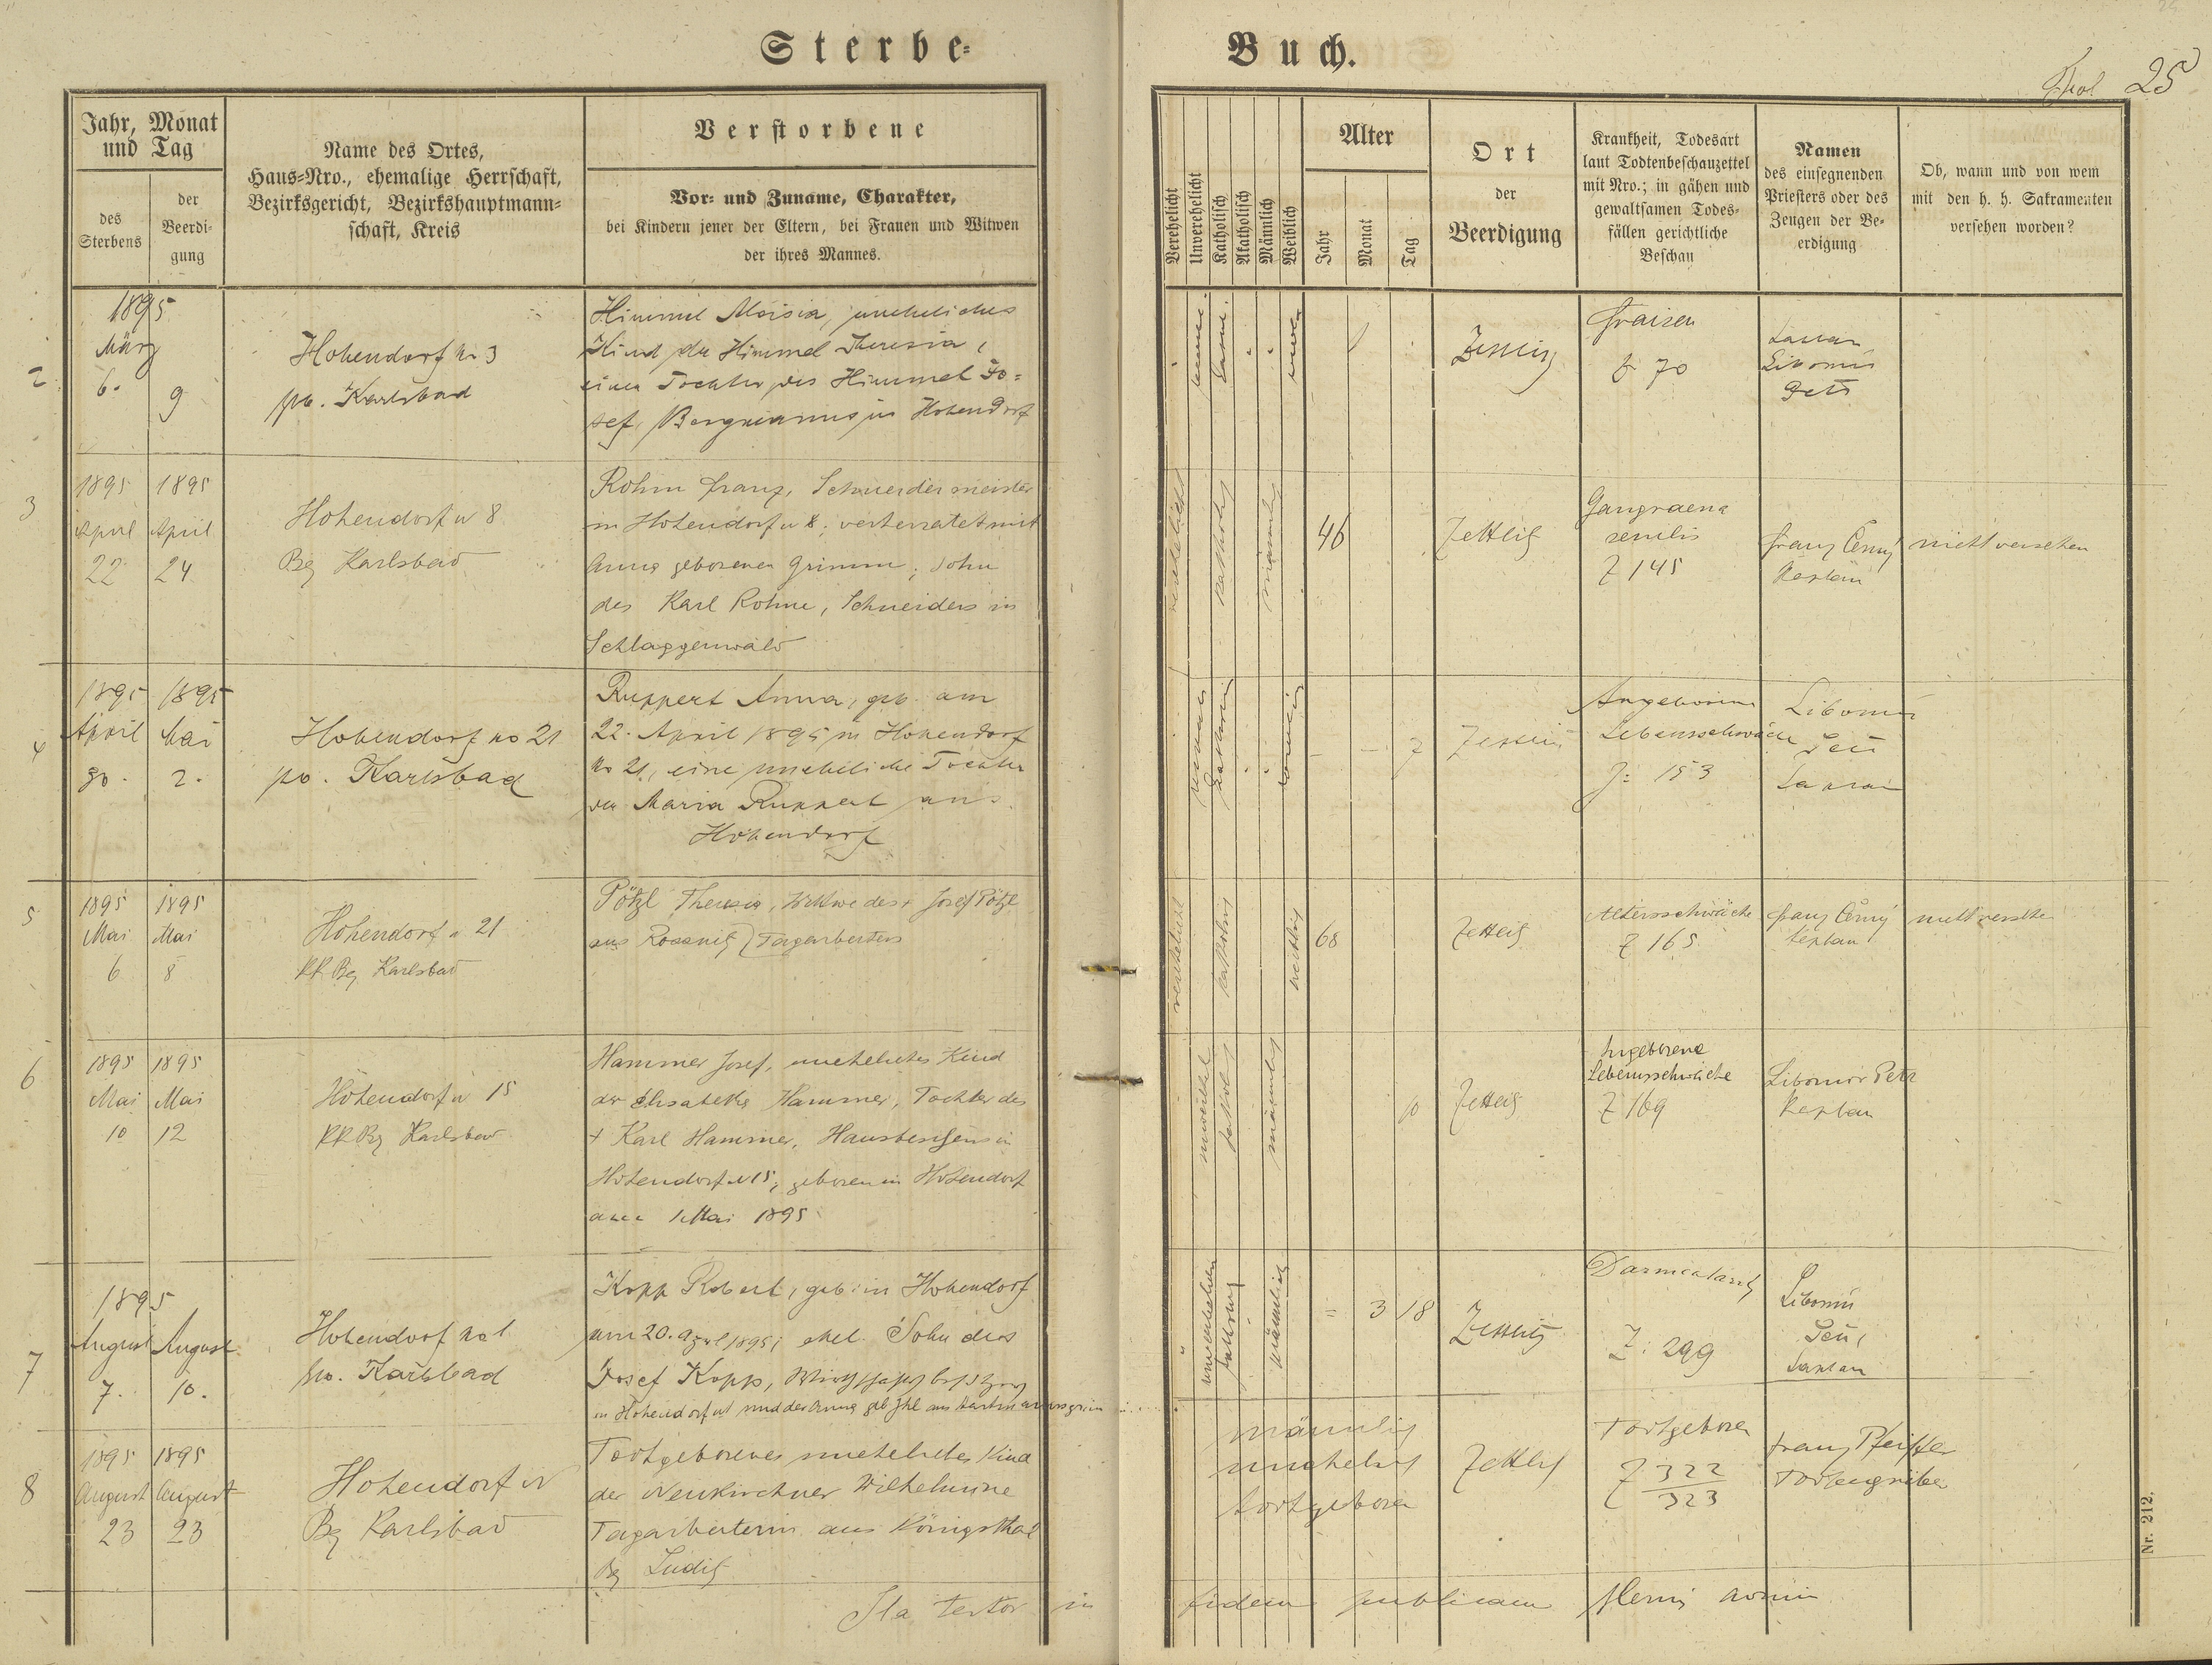 Sterbe-
Buch.
Fol 25
Jahr, Monat
und Tag
des
Sterbens
der
Beerdi-
gung
Name des Ortes,
Haus-Nro., ehemalige Herrschaft,
Bezirksgericht, Bezirkshauptmann-
schaft, Kreis
Verstorbene
Vor- und Zuname, Charakter,
bei Kindern jener der Eltern, bei Frauen und Witwen
der ihres Mannes.
Verehelicht
Unverehelicht
Katholisch
Akatholisch
Männlich
Weiblich
Alter
Jahr
Monat
Tag
Ort
der
Beerdigung
Krankheit, Todesart
laut Todtenbeschauzettel
mit Nro.; in gähen und
gewaltsamen Todes-
fällen gerichtliche
Beschau
Namen
des einsegnenden
Priesters oder des
Zeugen der Be-
erdigung
Ob, wann und von wem
mit den h. h. Sakramenten
versehen worden?
2
1895
März
6. 9
Hohendorf No 3
Karlsbad
Himmel Aloisia, uneheliches
Kind der Himmel Theresia,
einer Tochter des Himmel Jo-
sef, Bergmanns in Hohendorf
Zettlitz
Fraisen
Z 70
Kaplan
Libomir
Petr
3
1895 1895
April April
22 24
Hohendorf N 8
Bg Karlsbad
Rohm Franz, Schneidermeister
in Hohendorf N 8, verheiratet mit
Anna geborenen Grimm, Sohn
des Karl Rohm, Schneiders in
Schlaggenwald
verehelicht
katholisch
männlich
46
Zettlitz
Gangraena
senilis
Z 145
Franz Černý
Kaplan
nicht versehen
4
1895 1895
April Mai
30. 2.
Hohendorf No 21
Karlsbad
Ruppert Anna, geb. am
22. April 1895 in Hohendorf
No 21, eine uneheliche Tochter
der Maria Ruppert aus
Hohendorf
7
Zettlitz
Angeborene
Lebensschwäche
Z: 153
Libomir
Petr
Kaplan
5
1895 1895
Mai Mai
6 8
Hohendorf N 21
KK Bg Karlsbad
Pötzl Theresia, Witwe des + Josef Pötzl
aus Rossnitz, Tagarbeiters
verehelicht
katholisch
weiblich
68
Zettlitz
Altersschwäche
Z 165
Franz Černý
Kaplan
nicht versehen
6
1895 1895
Mai Mai
10 12
Hohendorf N 15
KK Bg Karlsbad
Hammer Josef, uneheliches Kind
der Elisabeth Hammer, Tochter des
+ Karl Hammer, Hausbesitzers in
Hohendorf N 15, geboren in Hohendorf
am 1 Mai 1895
männlich
10
Zettlitz
Angeborene
Lebensschwäche
Z 169
Libomir Petr
Kaplan
7
1895
August August
7. 10.
Hohendorf No 1
Karlsbad
Kopp Robert, geb. in Hohendorf
am 20. April 1895, ehel. Sohn des
Josef Kopp, Wirtschaftsbesitzers
in Hohendorf N 1 und der Anna geb
männlich
= 3 18
Zettlitz
Darmkatarrh
Z: 299
Libomir
Petr,
Kaplan
8
1895 1895
August August
23 23
Hohendorf N
Bg Karlsbad
Todtgeborenes uneheliches Kind
der Neukirchner Wilhelmine
Tagarbeiterin aus Königsthal
Bg Luditz
männlich
unehelich
todtgeboren
Zettlitz
Todtgeboren
Z 322
323
Franz Pfeiffer
Todtengräber
Ita testor in fidem publicam
Nr. 212.